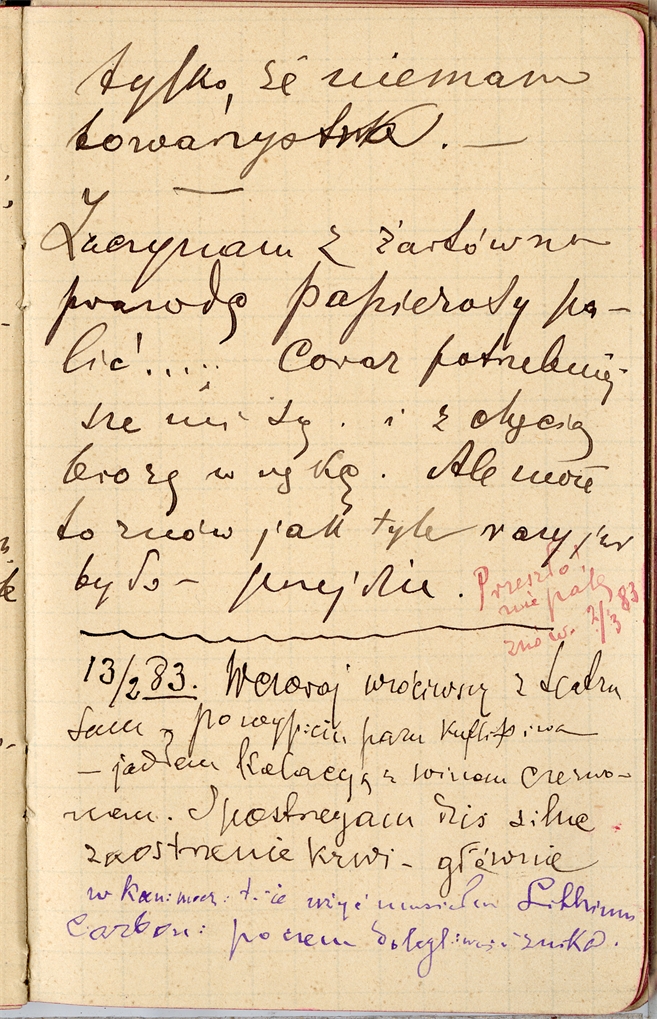 tylko, że niemam
towarzystwa. —
Zaczynam z żartów na
prawdę papierosy pa-
lić!..... Coraz potrzebniej-
sze mi są. i z chęcią
biorę w rękę. Ale może
to znów jak tyle razy już
było – przejdzie.
Przeszło,
nie palę
znów. 2/3 83
13/2 83. Wczoraj wróciwszy z teatru
sam, po wypiciu paru kufli piwa
– jadłem kolacyą z winem czerwo-
nem. Spostrzegam dziś silne
zaostrzenie krwi – głównie
w tzie wziąć musiałem Lithium
Carbon: poczem dolegliwość znikła.